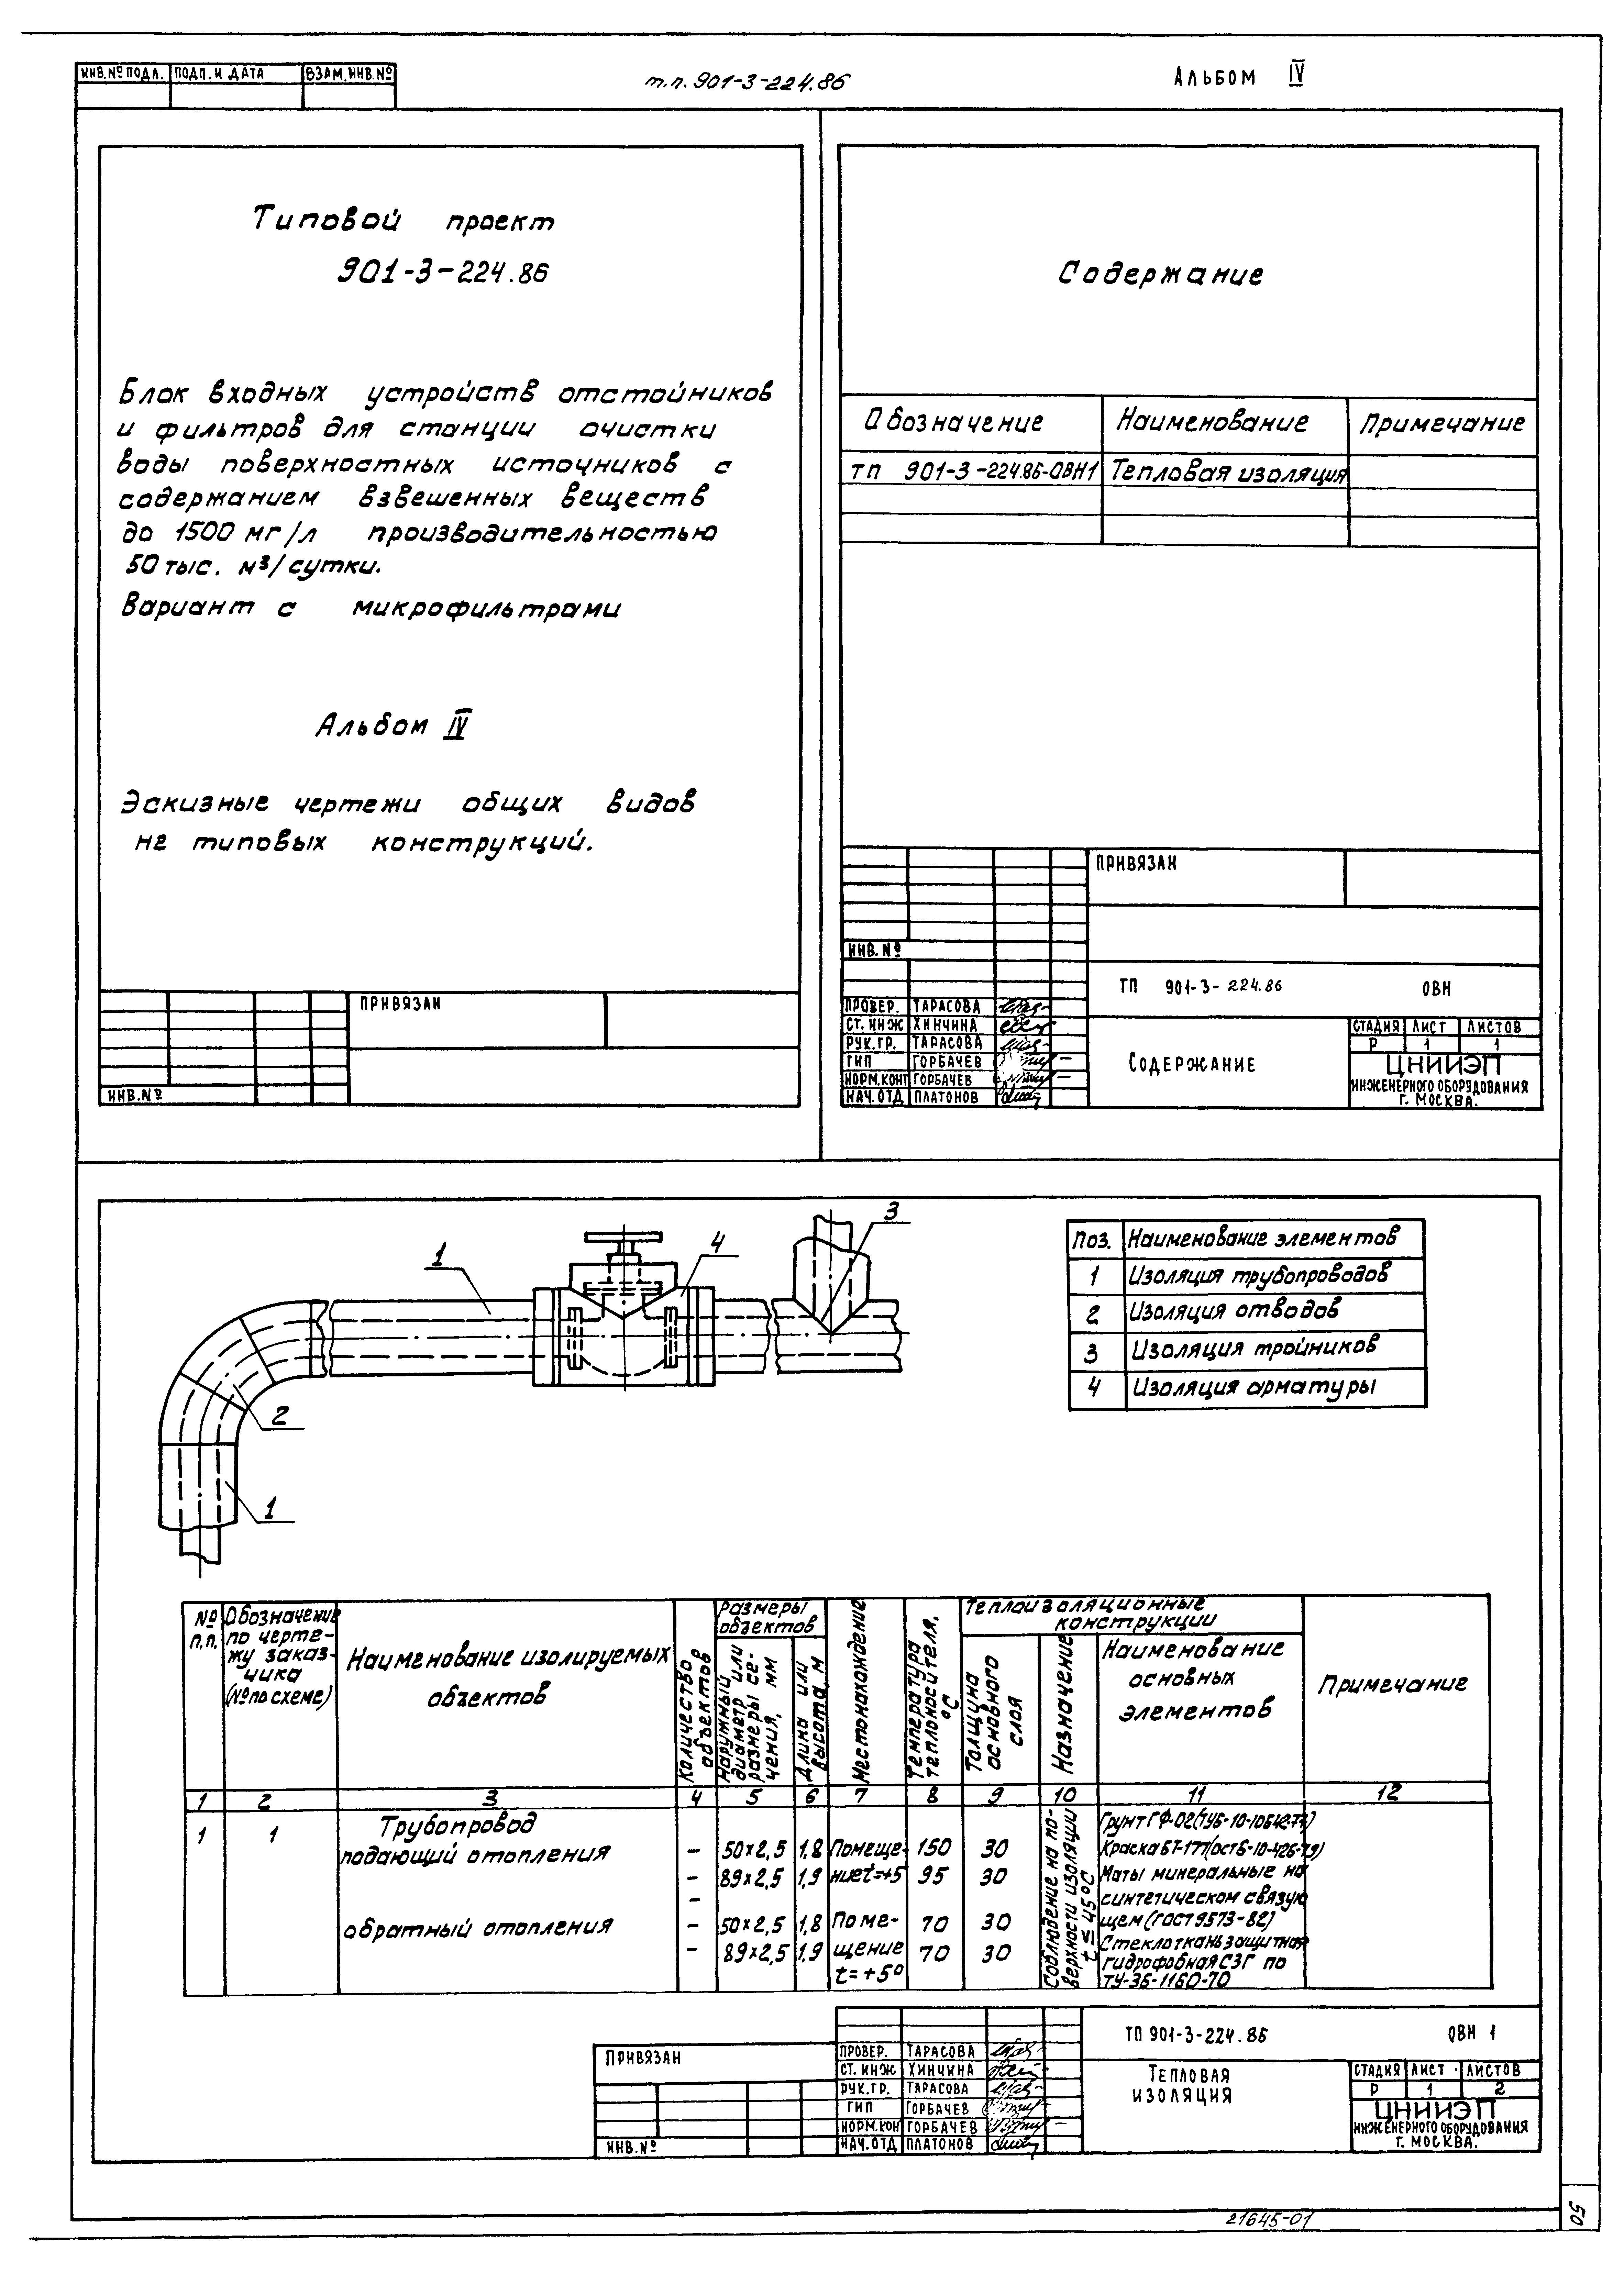 ИНВ.№ПОДЛ. ПОДП. И ДАТА ВЗАМ.ИНВ.№
т.п. 901-3-224.86
Альбом IV
Типовой проект
901-3-224.86
Блок входных устройств отстойников
и фильтров для станции очистки
воды поверхностных источников с
содержанием взвешенных веществ
до 1500 мг/л производительностью
50 тыс. м³/сутки.
Вариант с микрофильтрами
Альбом IV
Эскизные чертежи общих видов
не типовых конструкций.
ПРИВЯЗАН
ИНВ.№
Содержание
Обозначение Наименование Примечание
ТП 901-3-224.86-ОВН1 Тепловая изоляция
ПРИВЯЗАН
ИНВ.№
ТП 901-3-224.86 ОВН
ПРОВЕР. ТАРАСОВА
СТ. ИНЖ ХИНЧИНА
РУК.ГР. ТАРАСОВА
ГИП ГОРБАЧЕВ
НОРМ.КОНТ ГОРБАЧЕВ
НАЧ.ОТД ПЛАТОНОВ
Содержание
СТАДИЯ ЛИСТ ЛИСТОВ
Р 1 1
ЦНИИЭП
ИНЖЕНЕРНОГО ОБОРУДОВАНИЯ
Г. МОСКВА.
1
4
3
2
1
Поз. Наименование элементов
1 Изоляция трубопроводов
2 Изоляция отводов
3 Изоляция тройников
4 Изоляция арматуры
№ п.п.
Обозначение
по черте-
жу заказ-
чика
(№ по схеме)
Наименование изолируемых
объектов
Количество
объектов
Размеры
объектов
Наружный
диаметр или
размеры се-
чения, мм
Длина или
высота, м
Местонахождение
Температура
теплоносителя,
°С
Теплоизоляционные
конструкции
Толщина
основного
слоя
Назначение
Наименование
основных
элементов
Примечание
1 2 3 4 5 6 7 8 9 10 11 12
1 1 Трубопровод
подающий отопления – 50×2,5 1,8 Помеще- 150 30
– 89×2,5 1,9 ние t=+5 95 30
–
обратный отопления – 50×2,5 1,8 Поме- 70 30
– 89×2,5 1,9 щение 70 30
t=+5°
Соблюдение на по-
верхности изоляции
t ≤ 45°С
Грунт ГФ-02
Краска БТ-177 (ОСТ6-10-426-79)
Маты минеральные на
синтетическом связую
щем (ГОСТ 9573-82)
Стеклоткань защитная
гидрофобная СЗГ по
ТУ-36-1160-70
ПРИВЯЗАН
ИНВ.№
ТП 901-3-224.86 ОВН 1
ПРОВЕР. ТАРАСОВА
СТ. ИНЖ ХИНЧИНА
РУК.ГР. ТАРАСОВА
ГИП ГОРБАЧЕВ
НОРМ.КОН ГОРБАЧЕВ
НАЧ.ОТД ПЛАТОНОВ
Тепловая
изоляция
СТАДИЯ ЛИСТ ЛИСТОВ
Р 1 2
ЦНИИЭП
ИНЖЕНЕРНОГО ОБОРУДОВАНИЯ
Г. МОСКВА.
21645-01
50